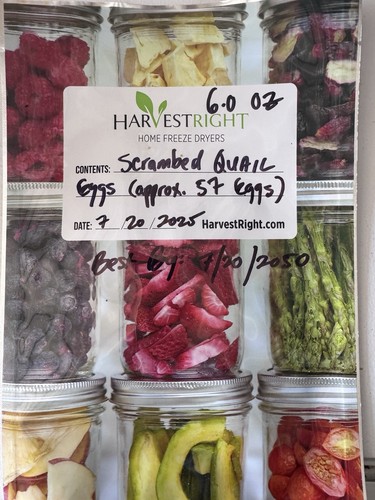 6.0 OZ
HARVESTRIGHT
HOME FREEZE DRYERS
CONTENTS: Scrambed QUAIL
Eggs (approx. 57 Eggs)
DATE: 7 / 20 / 2025 HarvestRight.com
Best By: 7/20/2050